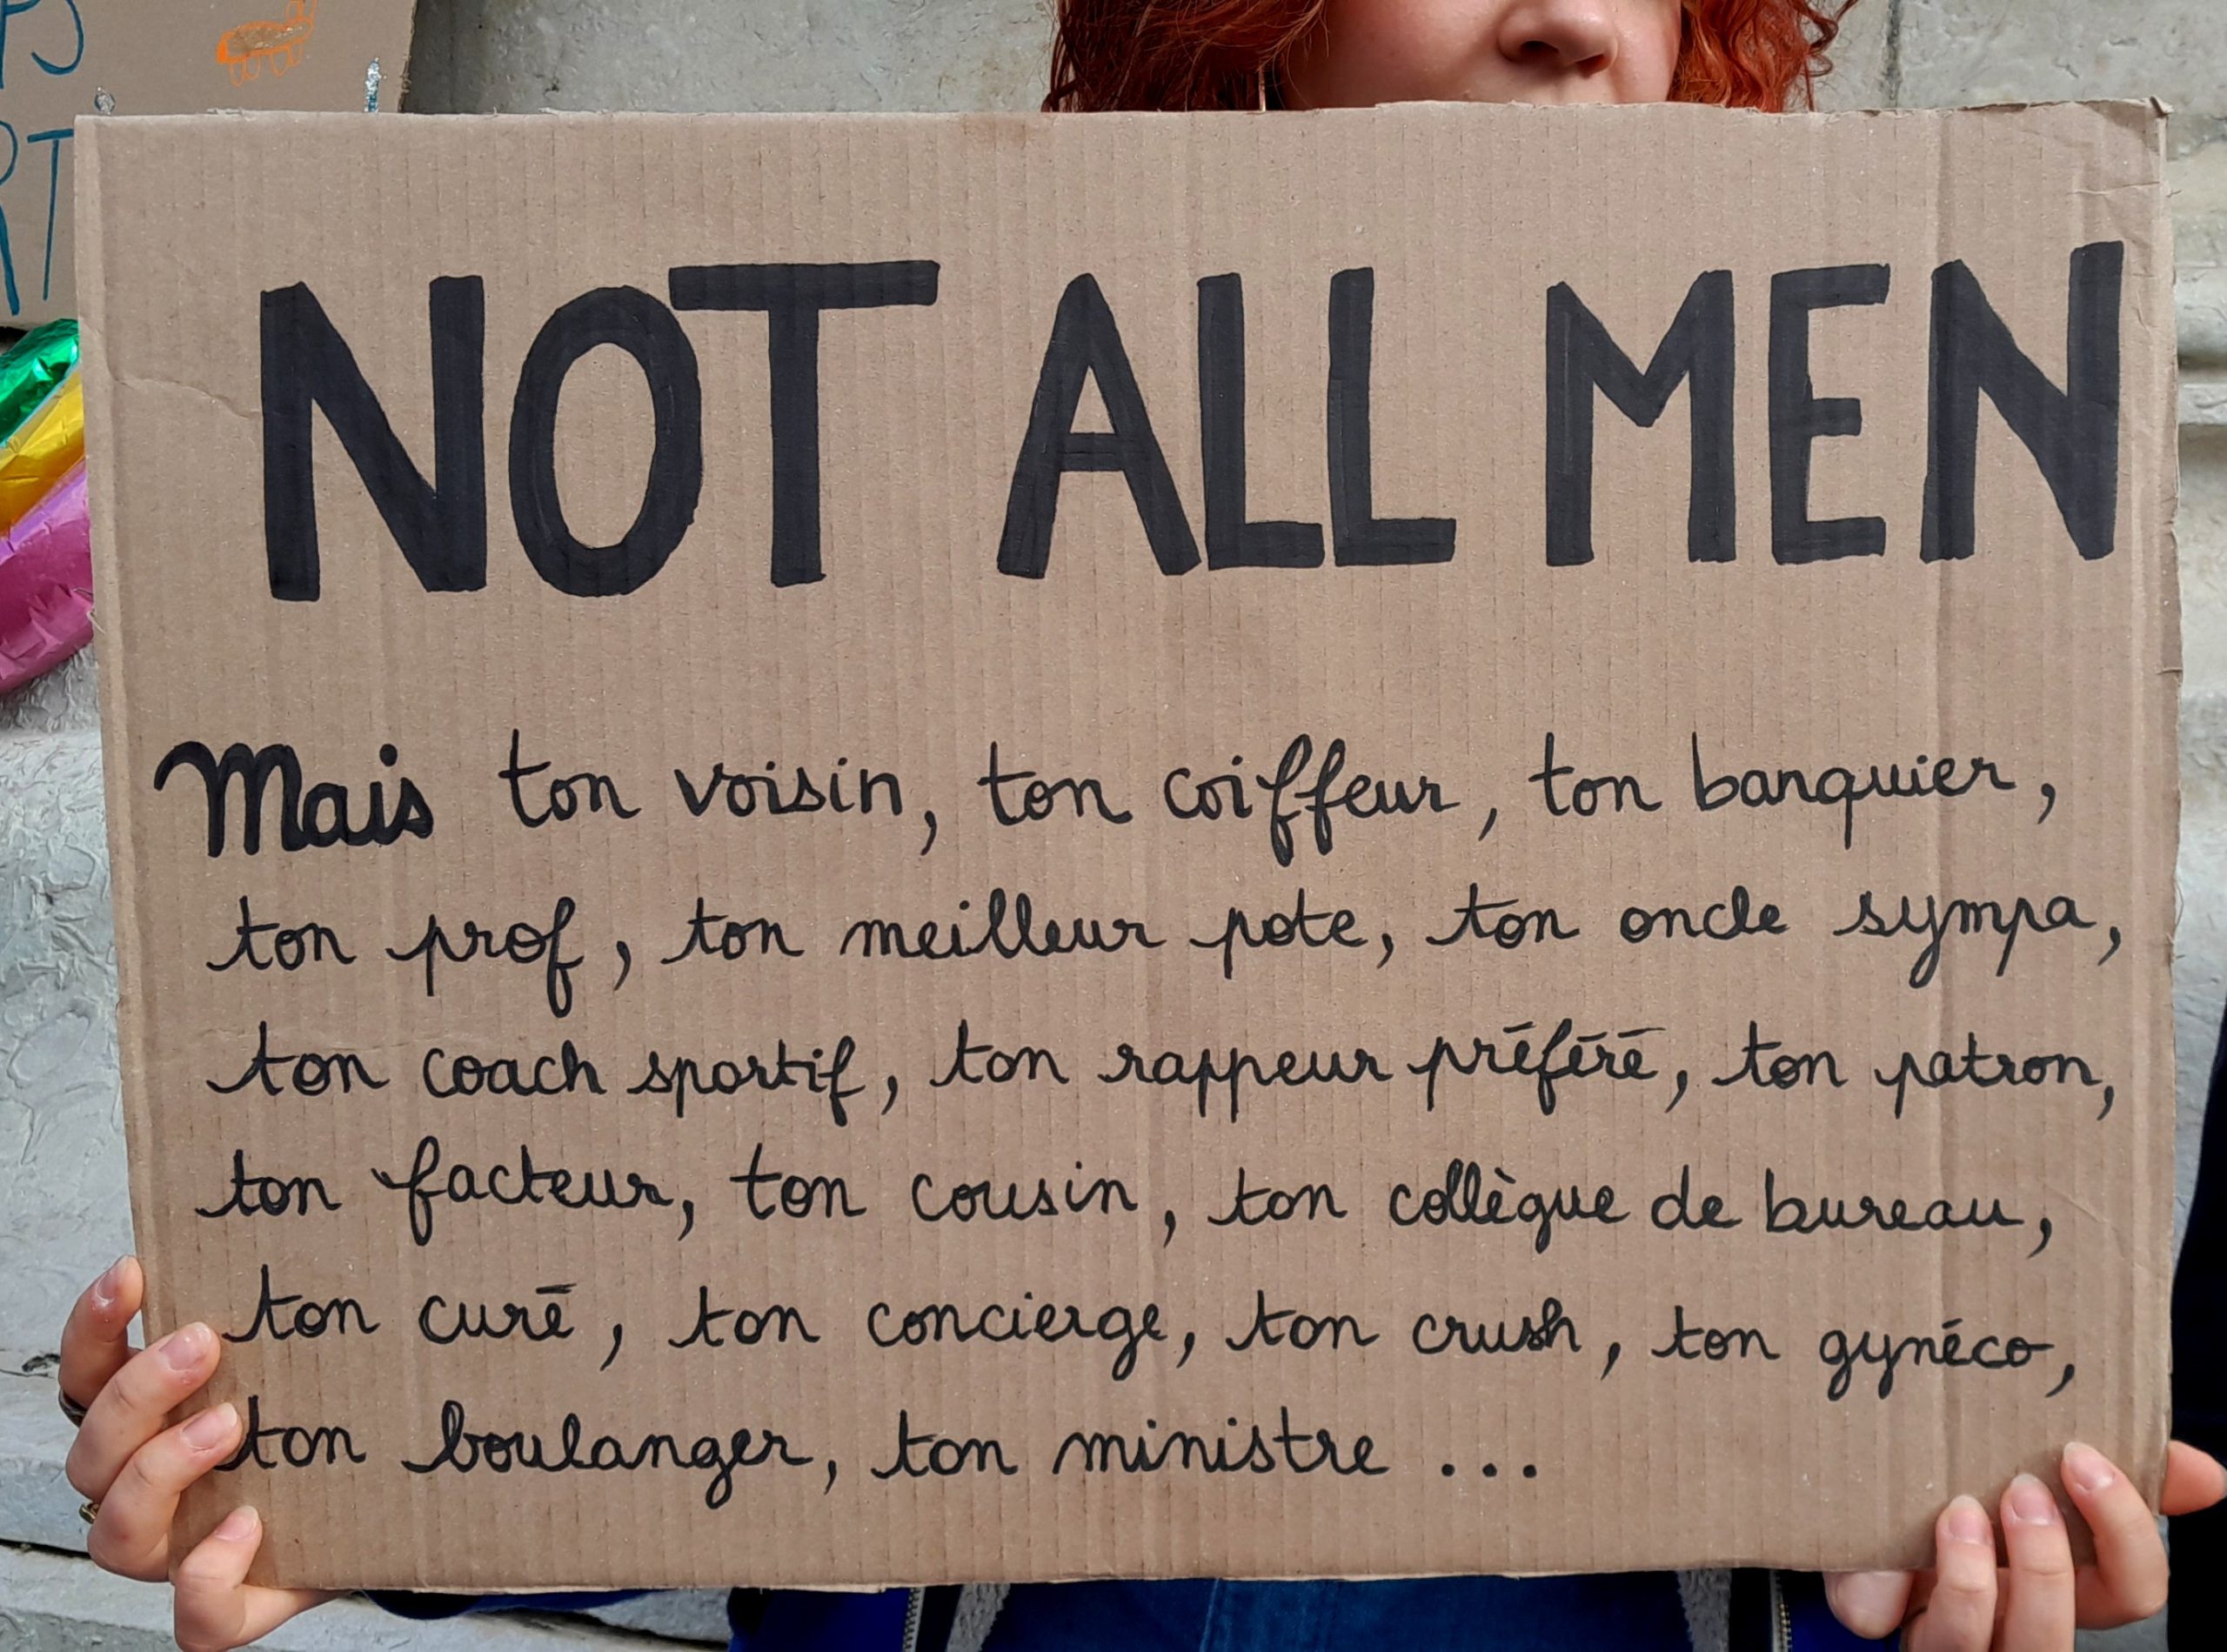 NOT ALL MEN
Mais ton voisin, ton coiffeur, ton banquier,
ton prof, ton meilleur pote, ton oncle sympa,
ton coach sportif, ton rappeur préféré, ton patron,
ton facteur, ton cousin, ton collègue de bureau,
ton curé, ton concierge, ton crush, ton gynéco,
ton boulanger, ton ministre ...